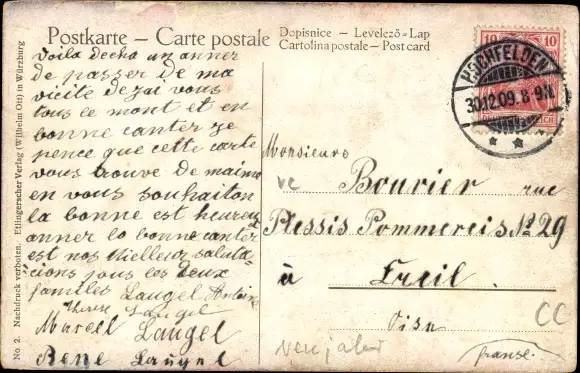 Postkarte – Carte postale
Dopisnice – Levelező-Lap
Cartolina postale – Post card
voila decha un anner
de passer de ma
vicite de zai vous
tous ce mont et en
bonne canter ze
pence que cette carte
vous trouve de maime
en vous souhaiton
la bonne est heureus
anner la bonne canter
est nos Meilleur saluta
cions tous les deux
familes Laugel Antoine
Therese Laugel
Marcell Laugel
Rene Laugel
10 10
HOCHFELDEN
30.12.09. 8-9N.
REICH
Monsieur
Bouvier rue
Plessis Pommereis No 29
à Creil.
Oise
CC
Neujahr
franse.
No 2. Nachdruck verboten. Ettlingerscher Verlag (Wilhelm Ott) in Würzburg